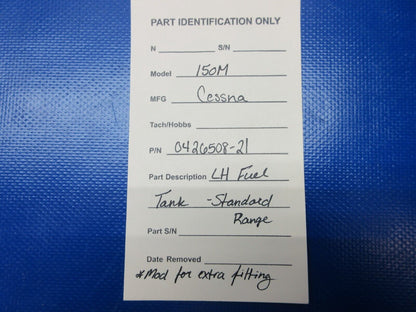 PART IDENTIFICATION ONLY
N S/N
Model 150M
MFG Cessna
Tach/Hobbs
P/N 0426508-21
Part Description LH Fuel
Tank - Standard
Range
Part S/N
Date Removed
*Mod for extra fitting